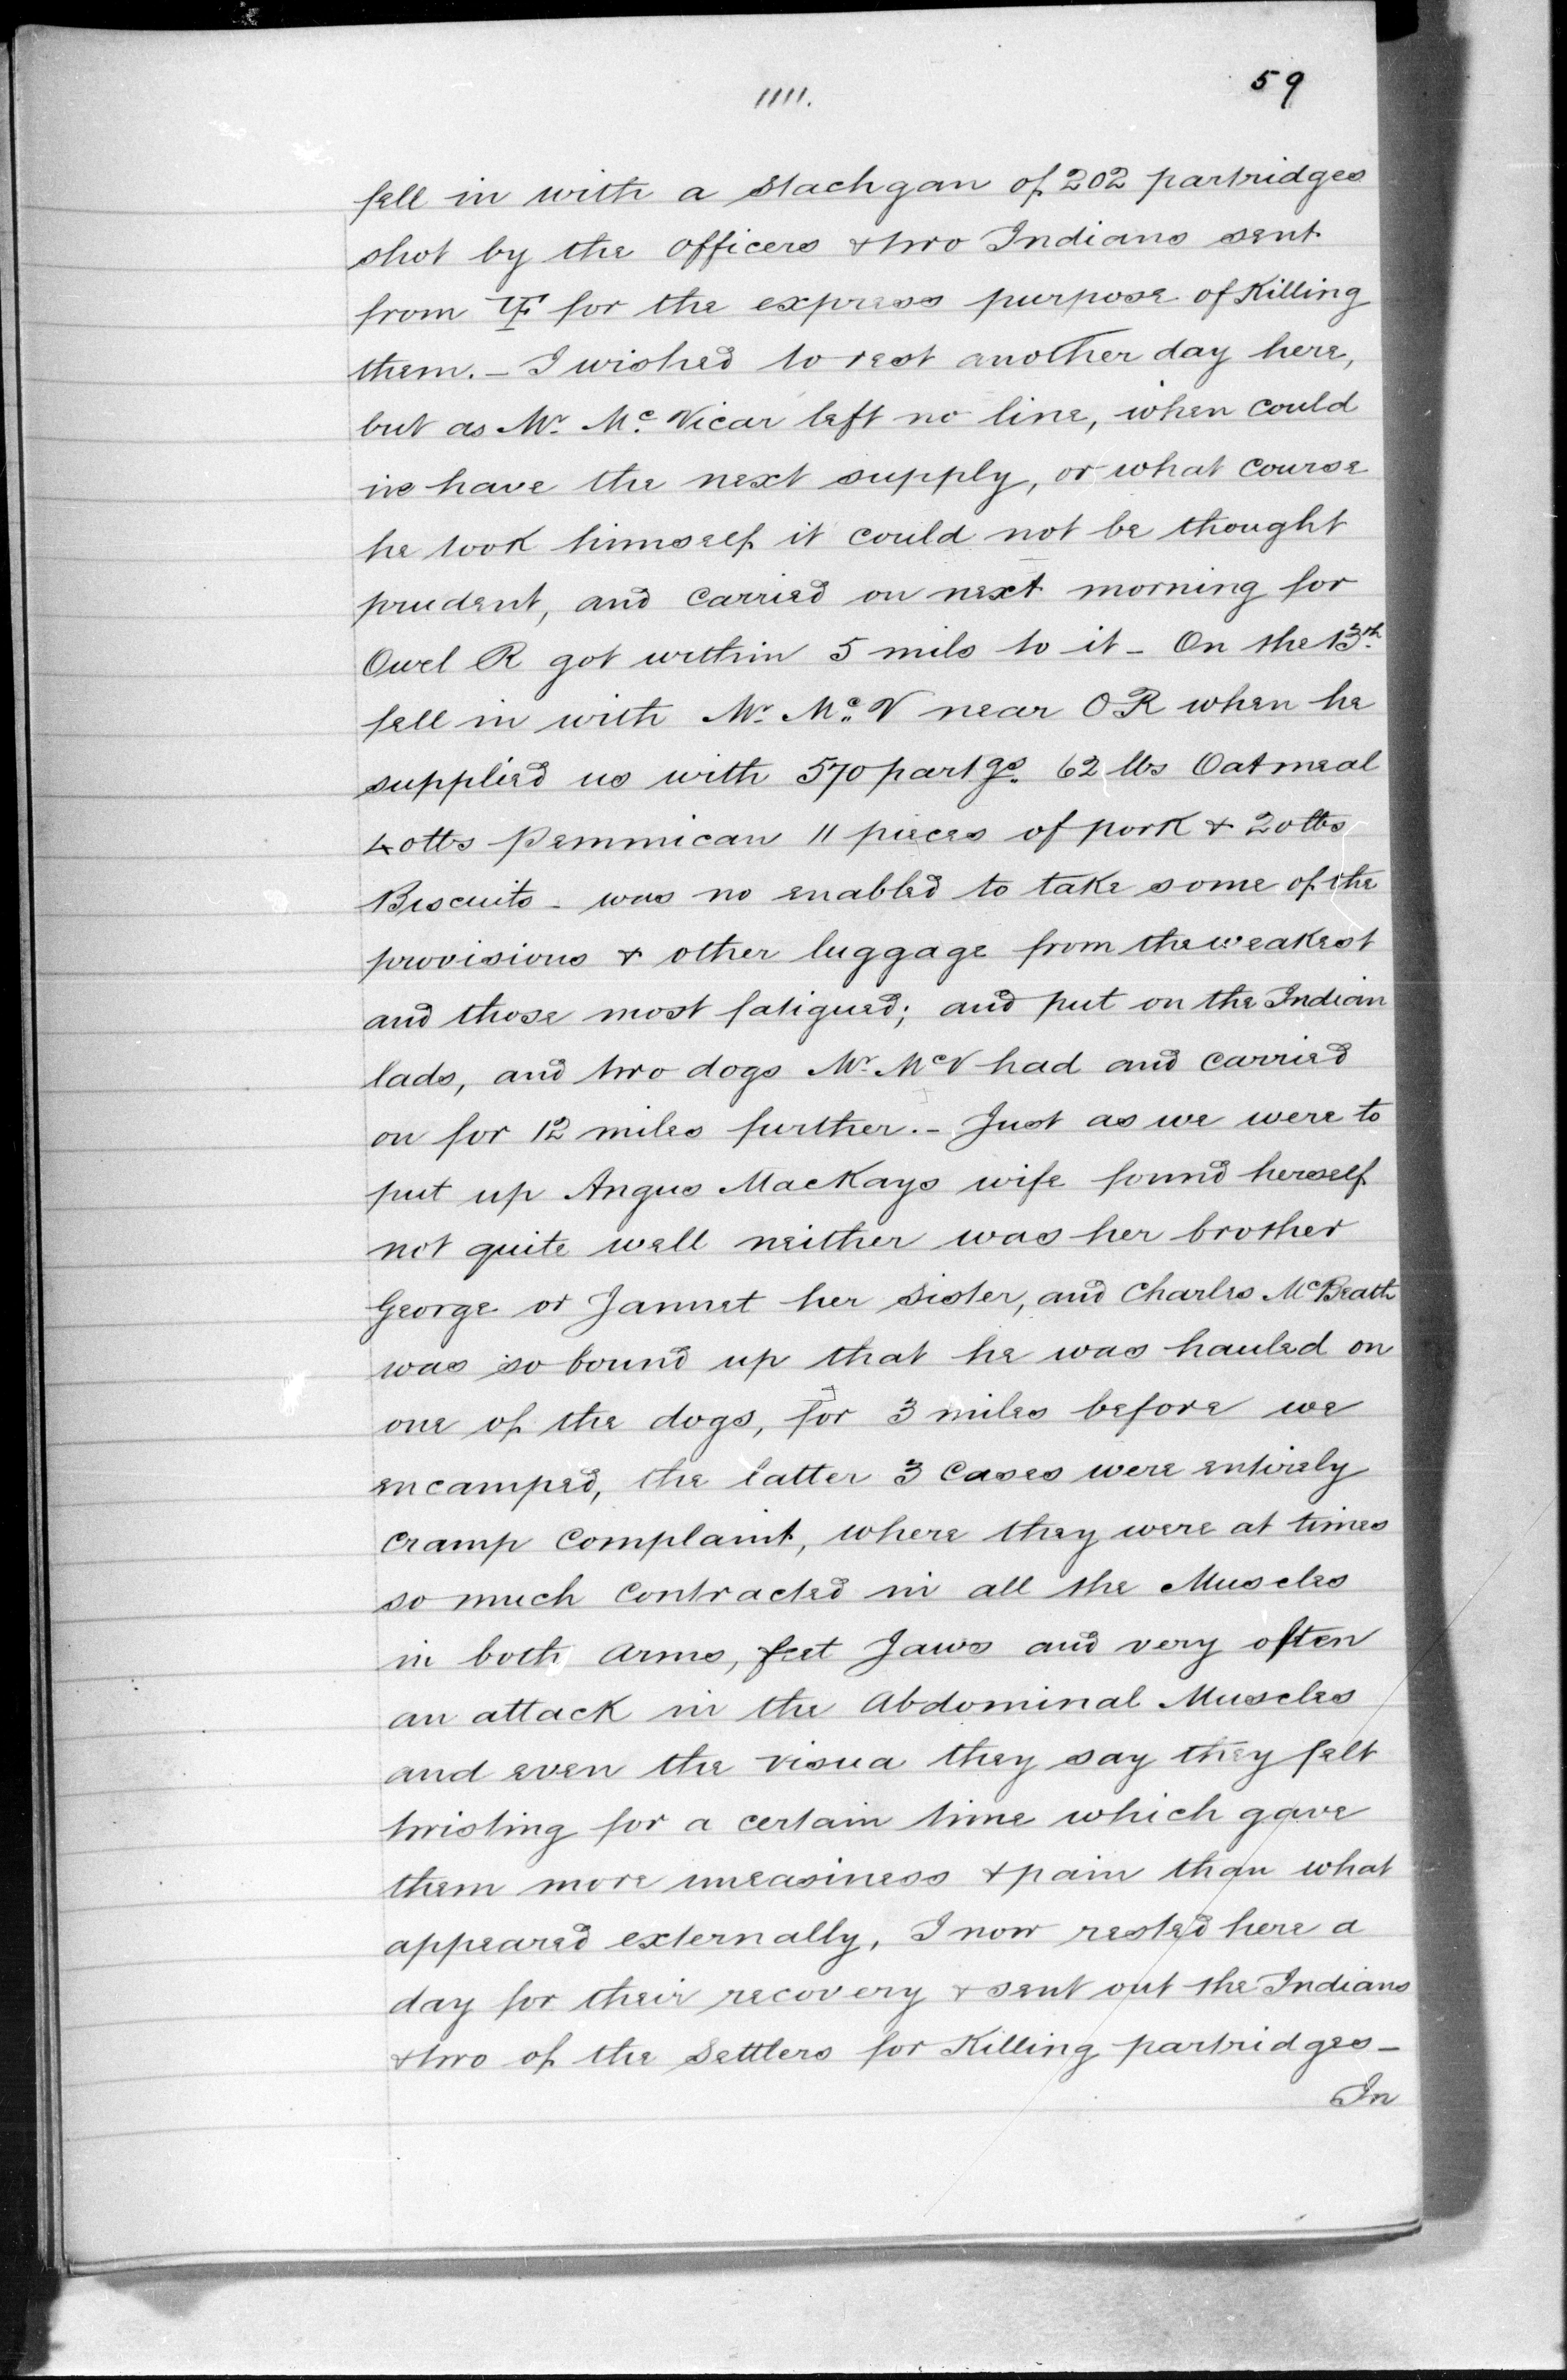 1111.
59
fell in with a Stachgan of 202 partridges
shot by the officers & two Indians sent
from YF for the express purpose of Killing
them. - I wished to rest another day here,
but as Mr. Mc. Vicar left no line, when could
we have the next supply, or what course
he took himself it could not be thought
prudent, and carried on next morning for
Owel R got within 5 mils to it - On the 13th.
fell in with Mr. Mc. V near OR when he
supplied us with 570 partgs. 62 lbs Oatmeal
40 lbs Pemmican 11 pieces of pork & 20 lbs
Biscuits - was no enabled to take some of the
provisions & other luggage from the weakest
and those most fatigued; and put on the Indian
lads, and two dogs Mr. McV had and carried
on for 12 miles further. - Just as we were to
put up Angus MacKays wife found herself
not quite well neither was her brother
George or Jannet her sister, and Charles McBeath
was so bound up that he was hauled on
one of the dogs, for 3 miles before we
encamped, the latter 3 cases were entirely
cramp complaint, where they were at times
so much contracted in all the Muscles
in both arms, feet Jaws and very often
an attack in the Abdominal Muscles
and even the visua they say they felt
twisting for a certain time which gave
them more uneasiness & pain than what
appeared externally, I now rested here a
day for their recovery & sent out the Indians
& two of the settlers for Killing partridges -
In